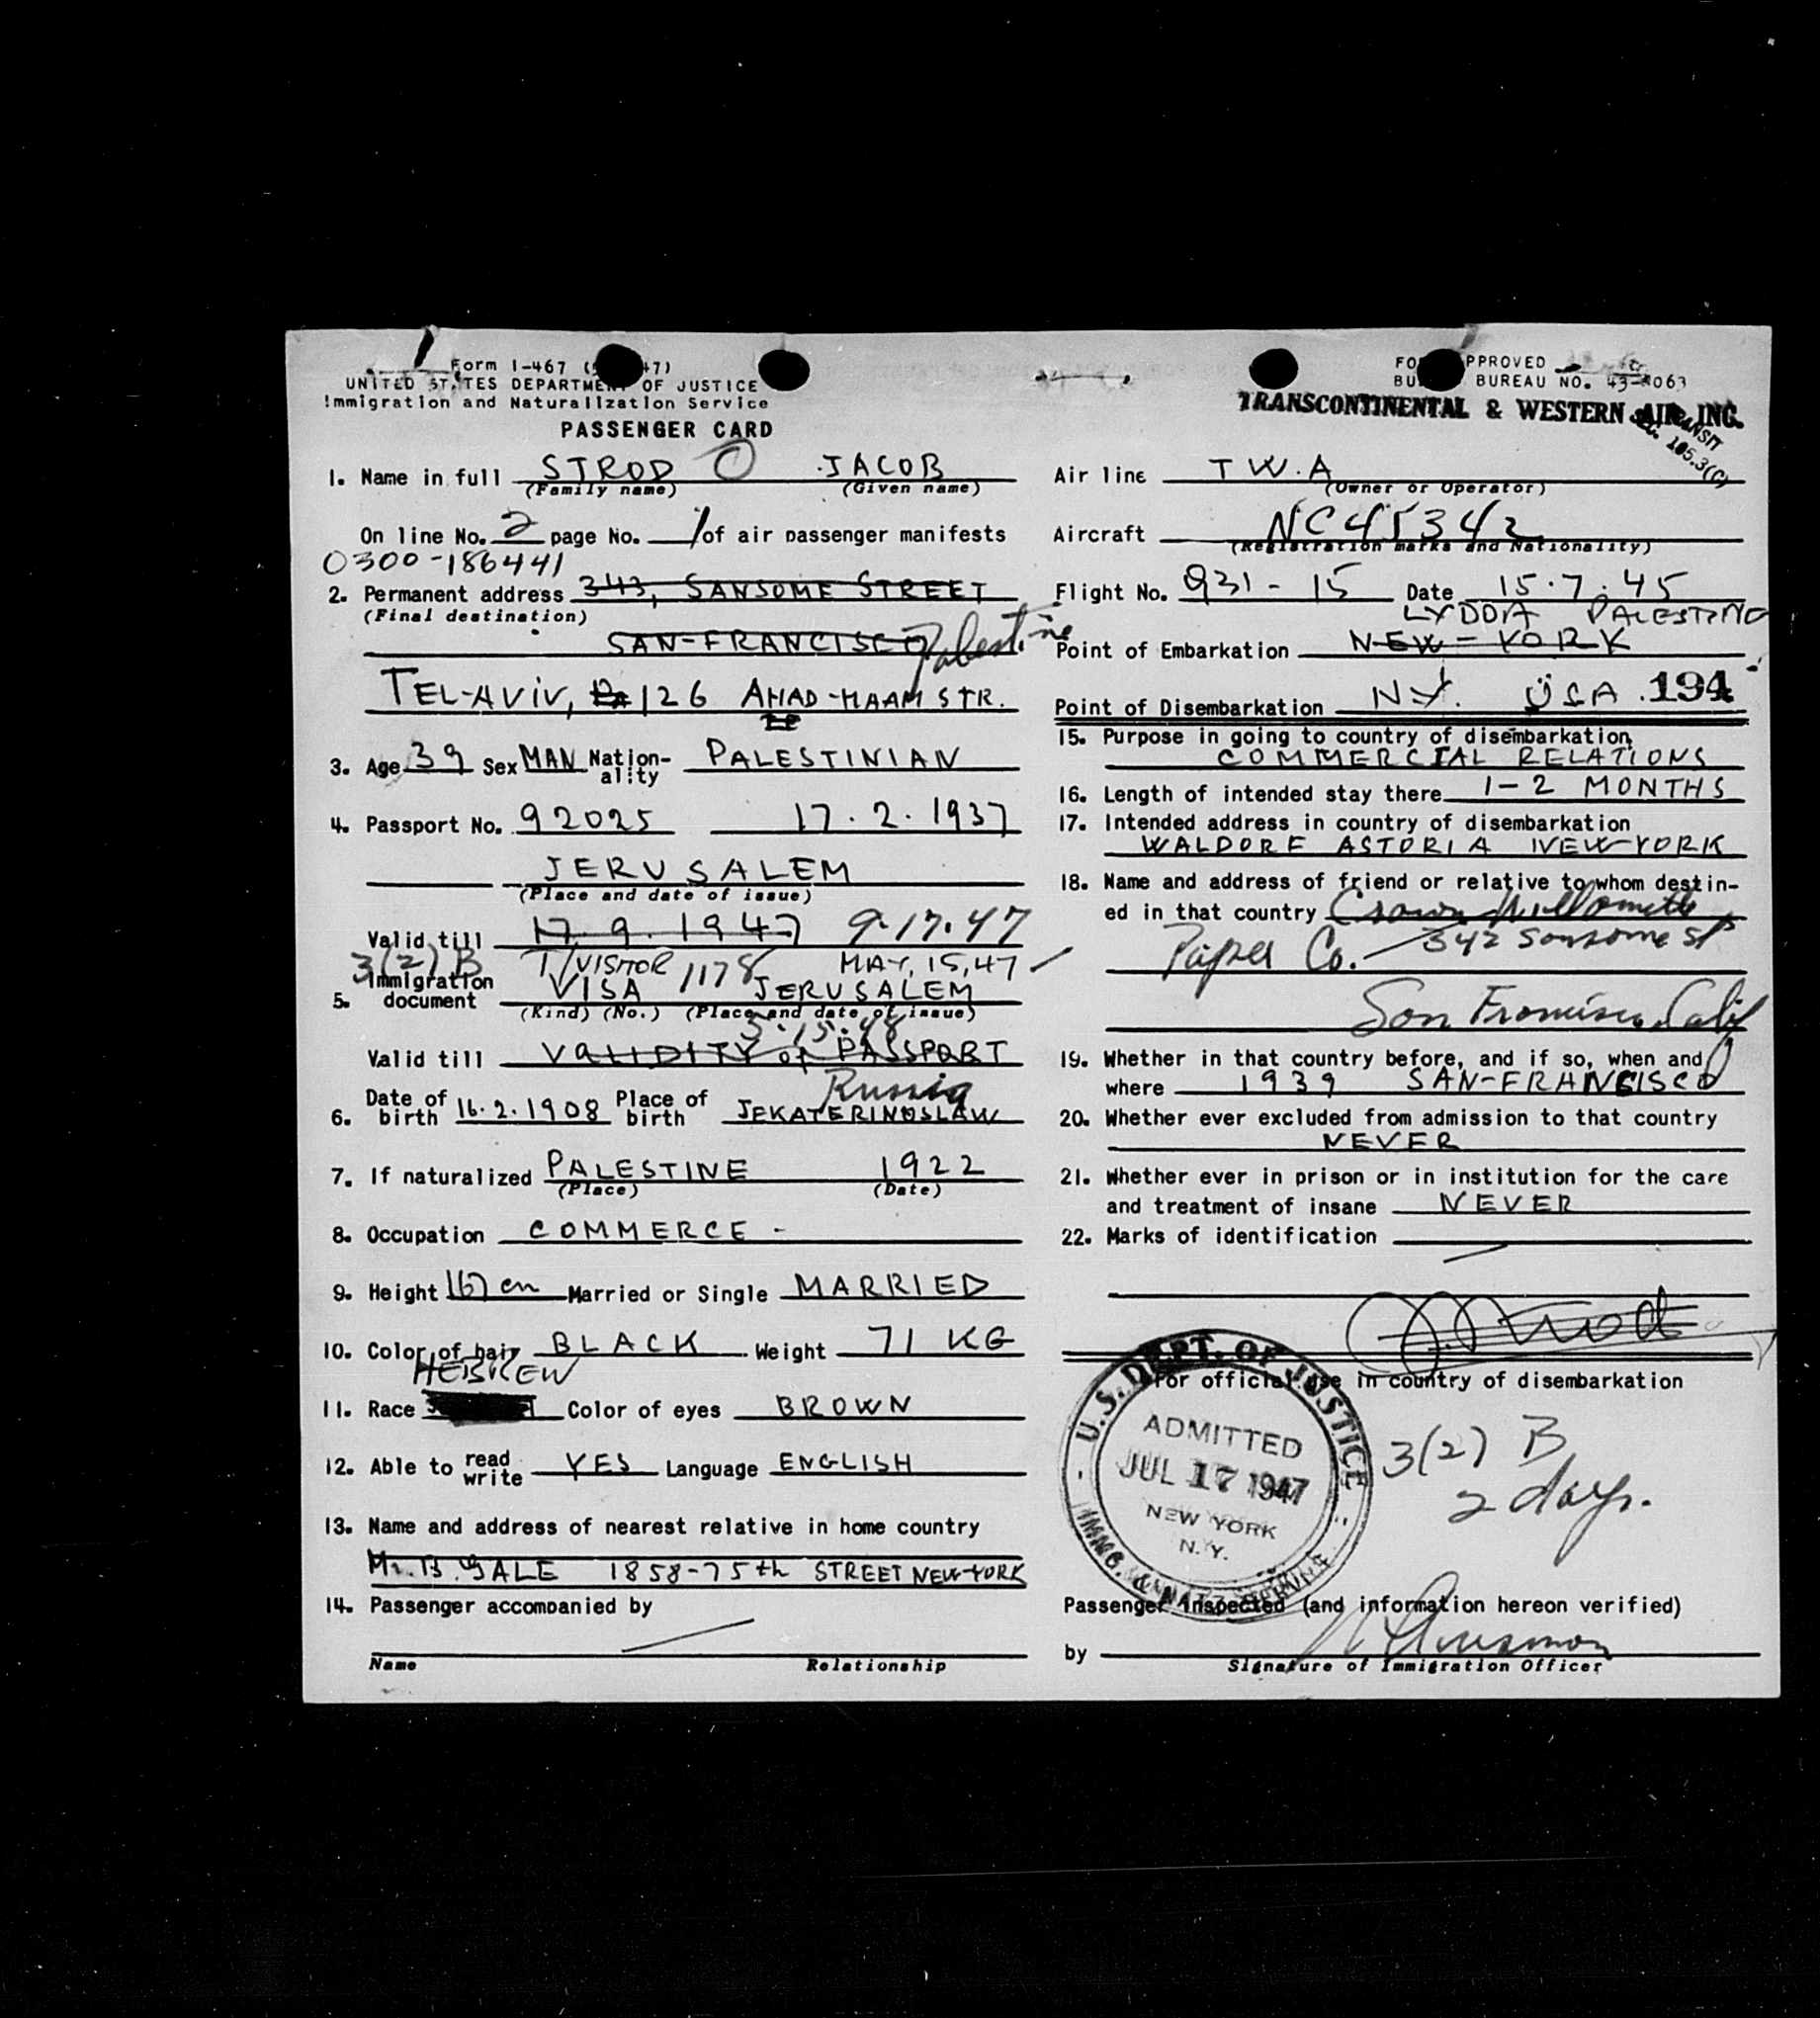 Form I-467 ( 47)
UNITED STATES DEPARTMENT OF JUSTICE
Immigration and Naturalization Service
PASSENGER CARD
1. Name in full STROD JACOB
(Family name) (Given name)
On line No. 2 page No. 1 of air passenger manifests
0300-186441
2. Permanent address 343, SANSOME STREET
(Final destination)
SAN-FRANCISCO Palestine
TEL-AVIV, 126 AHAD-HAAM STR.
3. Age 39 Sex MAN Nation-ality PALESTINIAN
4. Passport No. 92025 17.2.1937
JERUSALEM
(Place and date of issue)
Valid till 17.9.1947 9.17.47
3(2) B T/VISITOR 1178 MAY, 15, 47
5. Immigration document VISA JERUSALEM
(Kind) (No.) (Place and date of issue)
5.15.48
Valid till VALIDITY of PASSPORT
Russia
6. Date of birth 16.2.1908 Place of birth JEKATERINOSLAW
7. If naturalized PALESTINE 1922
(Place) (Date)
8. Occupation COMMERCE -
9. Height 167 cm Married or Single MARRIED
10. Color of hair BLACK Weight 71 KG
HEBREW
11. Race Color of eyes BROWN
12. Able to read write YES Language ENGLISH
13. Name and address of nearest relative in home country
Mr. B. GALE 1858-75th STREET NEW-YORK
14. Passenger accompanied by
Name Relationship
FO PPROVED
BU BUREAU NO. 43-R063
TRANSCONTINENTAL & WESTERN AIR, INC.
TRANSIT
SEC. 105.3(C)
Air line T W.A
(Owner or Operator)
Aircraft NC45342
(Registration marks and Nationality)
Flight No. 931-15 Date 15.7.45
LYDDA PALESTINE
Point of Embarkation NEW-YORK
Point of Disembarkation N.Y. USA 194
15. Purpose in going to country of disembarkation
COMMERCIAL RELATIONS
16. Length of intended stay there 1-2 MONTHS
17. Intended address in country of disembarkation
WALDORF ASTORIA NEW-YORK
18. Name and address of friend or relative to whom destin-
ed in that country Crown Willamette
Paper Co. 342 Sansome St
San Francisco, Calif
19. Whether in that country before, and if so, when and
where 1939 SAN-FRANCISCO
20. Whether ever excluded from admission to that country
NEVER
21. Whether ever in prison or in institution for the care
and treatment of insane NEVER
22. Marks of identification
J. Strod
For official use in country of disembarkation
U.S. DEPT. OF JUSTICE
ADMITTED
JUL 17 1947
NEW YORK
N.Y.
IMMG. & NATZ. SERVICE
3(2) B
2 days.
Passenger inspected (and information hereon verified)
by
Signature of Immigration Officer